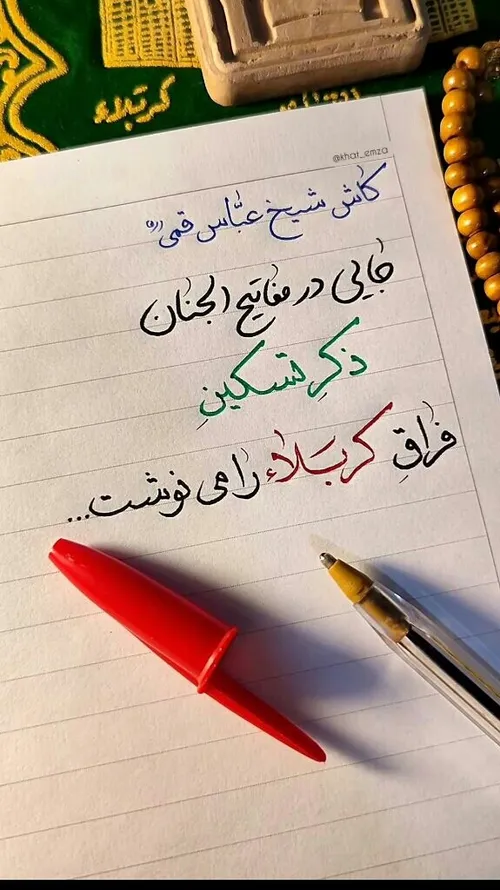 کربلاء
@khat_emza
کاش شیخ عبّاس قمی(ره)
جایی در مفاتیح الجنان
ذکرِ تسکینِ
فراقِ کربَلاء را می نوشت...